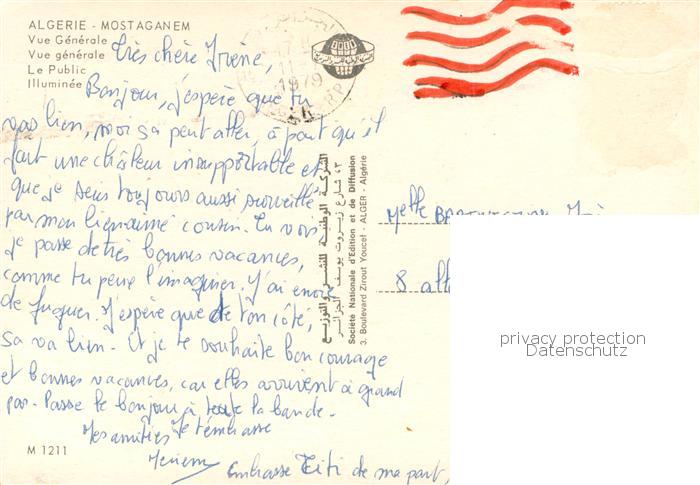 ALGERIE - MOSTAGANEM
Vue Générale
Vue générale
Le Public
Illuminée
Très chère Irène,
Bonjour, j'espère que tu
vas bien, moi sa peut aller, à part qu'il
fait une châleur insupportable et
que je suis toujours aussi surveillé
par mon bienaimé cousin. Tu vois
je passe de très bonnes vacances,
comme tu peux l'imaginer. J'ai envie
de fuguer. J'espère que de ton côté,
sa va bien. Et je te souhaite bon courage
et bonnes vacances, car elles arrivent à grand
pas. Passe le bonjour à toute la bande.
Mes amitiés Je t'embrasse
Embrasse Titi de ma part,
M 1211
1979
الشركة الوطنية للنشر والتوزيع
٤٣ شارع زيروت يوسف الجزائر
Société Nationale d'Edition et de Diffusion
3, Boulevard Zirout Youcef - ALGER - Algérie
Melle
8 all
privacy protection
Datenschutz